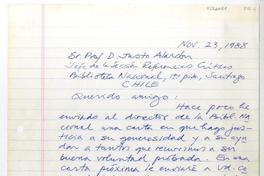 Nov. 23, 1988
Sr. Prof. D. Justo Alarcón
Jefe de la Sección Referencias Críticas
Biblioteca Nacional, 1er piso, Santiago
CHILE
Querido amigo:
Hace poco he
enviado al director de la Bibl. Na
cional una carta en que hago jus-
ticia a su generosidad y a su ayu
da a tantos que recurrimos a su
buena voluntad probada. En una
carta próxima le enviaré a Vd. co